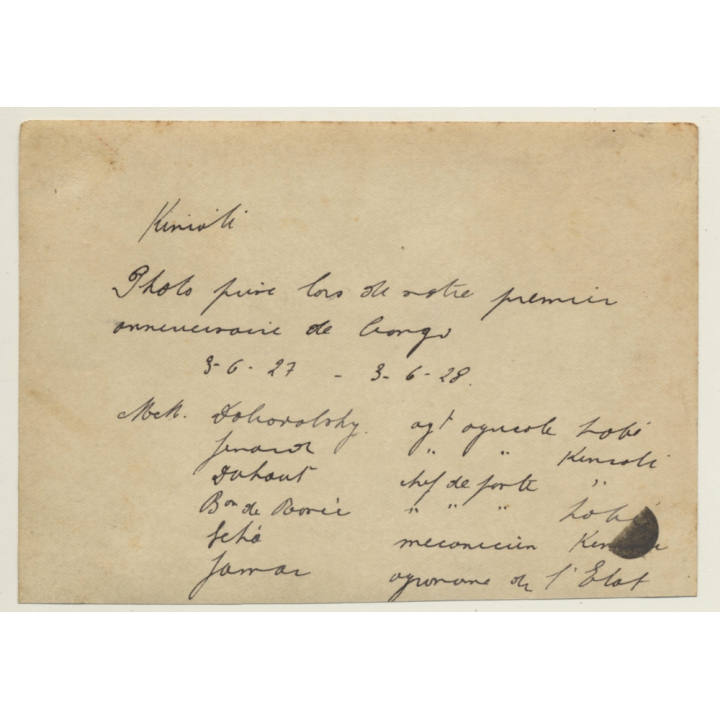 Kincoli
Photo prise lors de notre premier
anniversaire de Congo
3-6-27 - 3-6-28.
MM. Dobovolsky. agt agricole Lobé
" " Kincoli
Duhaut chef de poste "
Bon de " " " Lobé
mecanicien
Jamar agronome de l'Etat